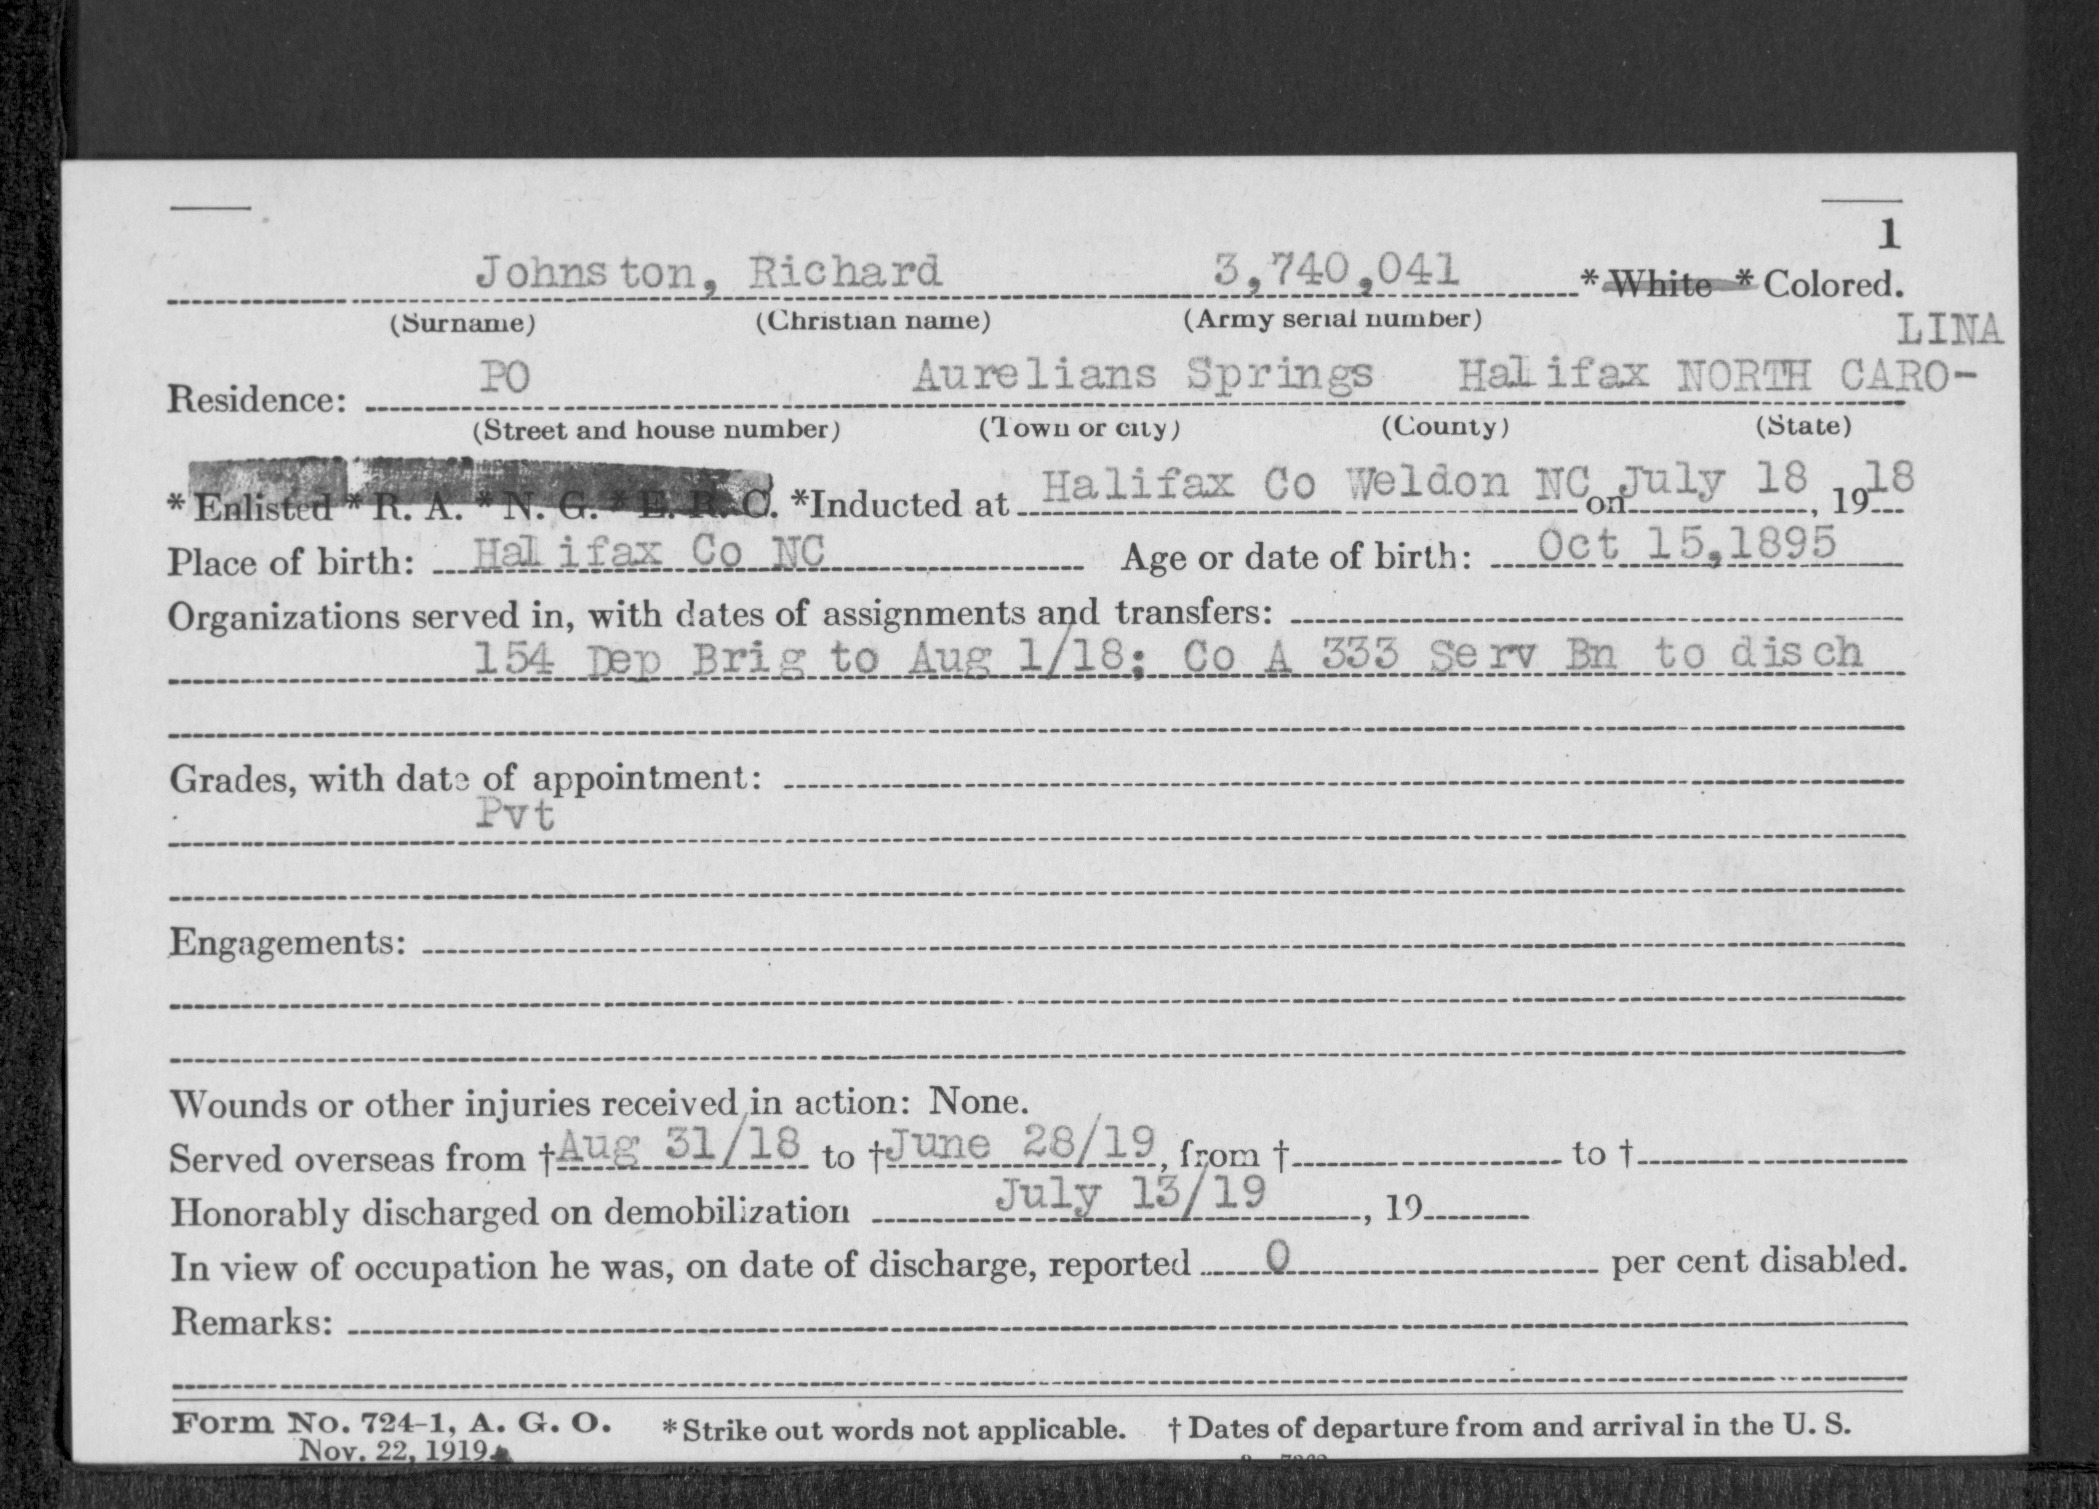 1
Johnston, Richard 3,740,041 * White * Colored.
(Surname) (Christian name) (Army serial number)
LINA
Residence: PO Aurelians Springs Halifax NORTH CARO-
(Street and house number) (Town or city) (County) (State)
* Enlisted * R. A. * N. G. * E. R. C. *Inducted at Halifax Co Weldon NC on July 18, 1918
Place of birth: Halifax Co NC Age or date of birth: Oct 15,1895
Organizations served in, with dates of assignments and transfers:
154 Dep Brig to Aug 1/18; Co A 333 Serv Bn to disch
Grades, with date of appointment:
Pvt
Engagements:
Wounds or other injuries received in action: None.
Served overseas from †Aug 31/18 to †June 28/19, from † to †
Honorably discharged on demobilization July 13/19, 19
In view of occupation he was, on date of discharge, reported 0 per cent disabled.
Remarks:
Form No. 724-1, A. G. O. * Strike out words not applicable. † Dates of departure from and arrival in the U. S.
Nov. 22, 1919.